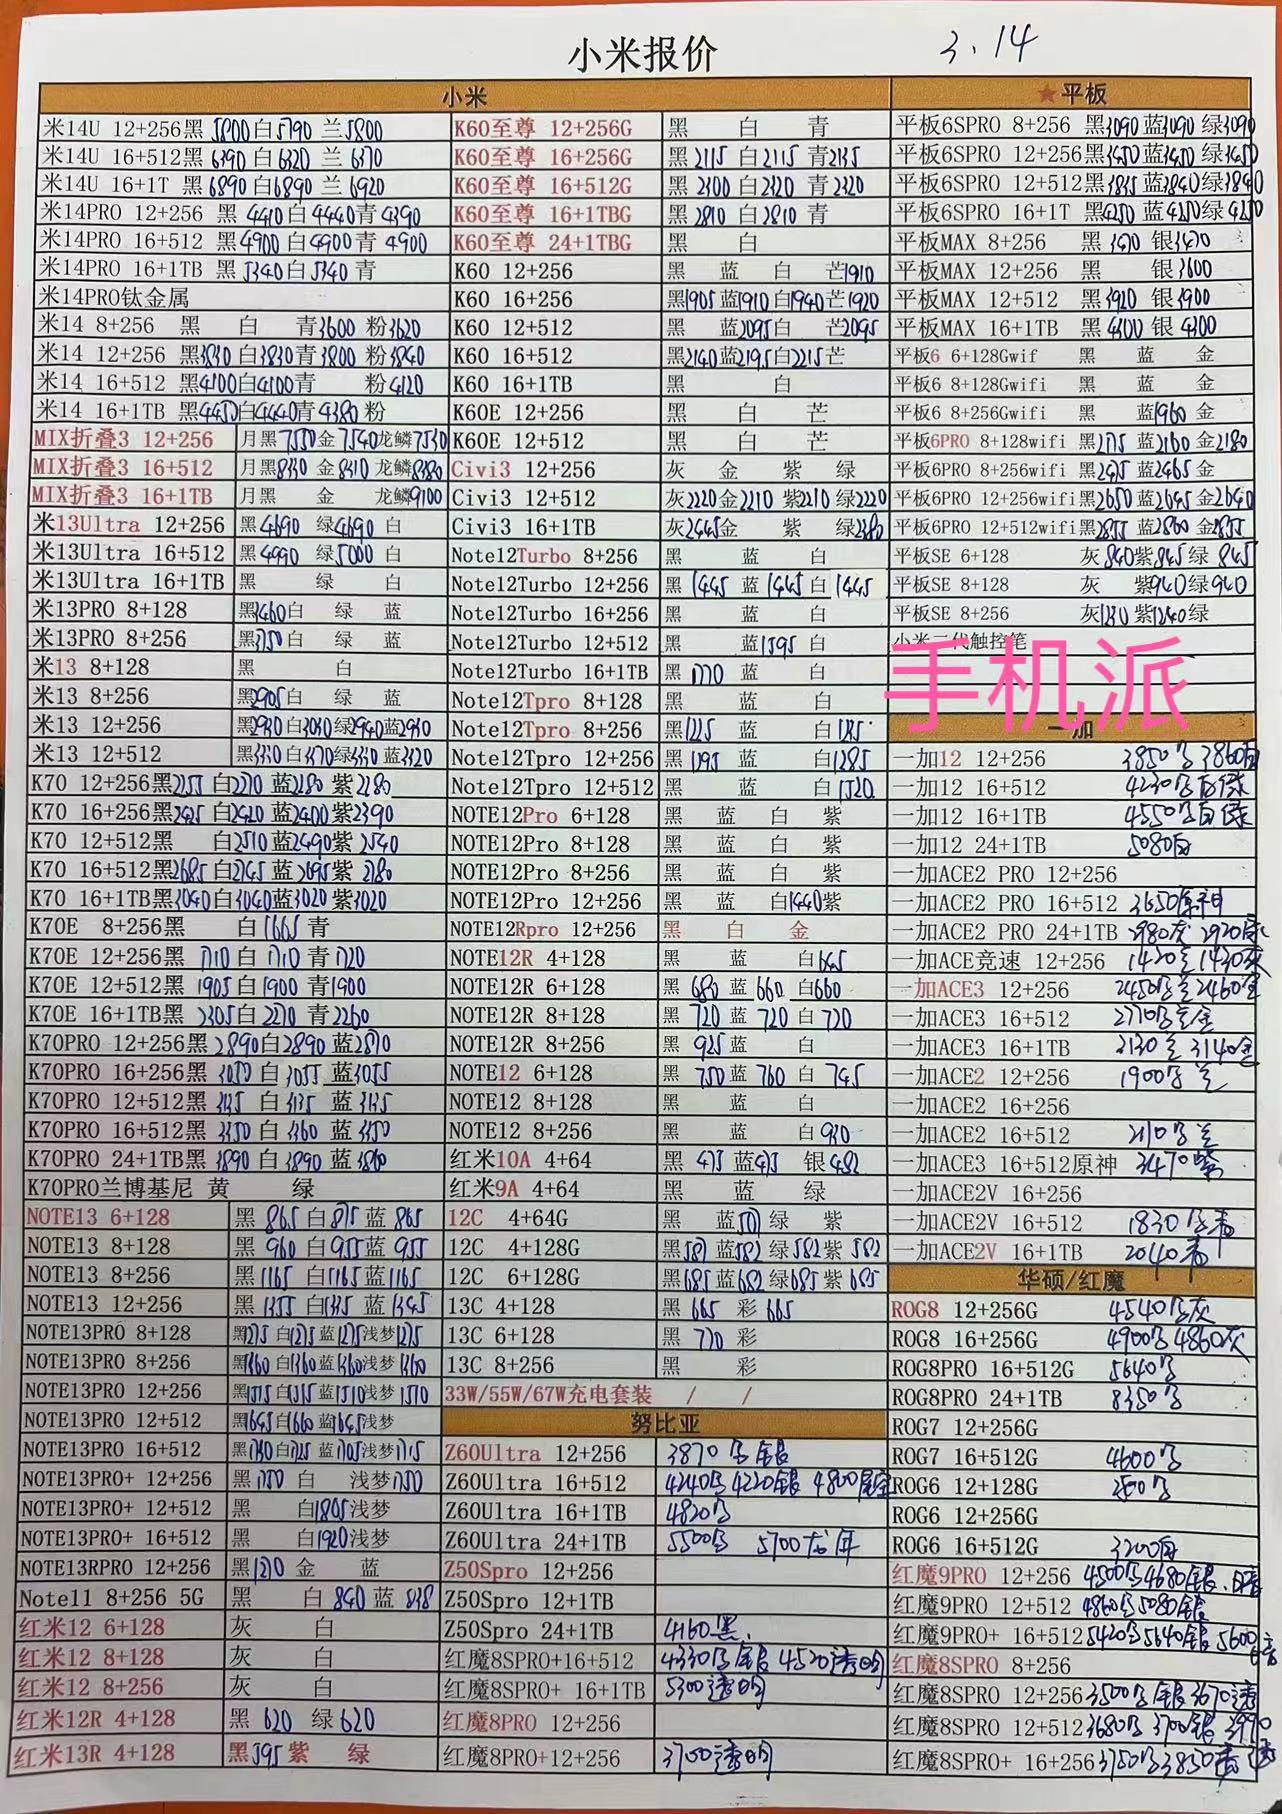 小米报价 3.14
小米
米14U 12+256黑 5800 白5790 兰5800
米14U 16+512黑 6390 白6320 兰6370
米14U 16+1T 黑 6890 白6890 兰 6920
米14PRO 12+256 黑 4410 白 4440 青 4390
米14PRO 16+512 黑 4900 白4900 青 4900
米14PRO 16+1TB 黑 5340 白 5340 青
米14PRO钛金属
米14 8+256 黑 白 青3600 粉3620
米14 12+256 黑3830 白3830 青3800 粉3840
米14 16+512 黑4100 白4100 青 粉4120
米14 16+1TB 黑4450 白4440 青4380 粉
MIX折叠3 12+256 月黑7550 金7540 龙鳞7530
MIX折叠3 16+512 月黑8330 金8310 龙鳞8380
MIX折叠3 16+1TB 月黑 金 龙鳞9100
米13Ultra 12+256 黑4690 绿4690 白
米13Ultra 16+512 黑4990 绿5000 白
米13Ultra 16+1TB 黑 绿 白
米13PRO 8+128 黑3460 白 绿 蓝
米13PRO 8+256 黑3750 白 绿 蓝
米13 8+128 黑 白
米13 8+256 黑2905 白 绿 蓝
米13 12+256 黑2930 白3030 绿2940 蓝2930
米13 12+512 黑3330 白3370 绿3330 蓝3320
K70 12+256黑2255 白2270 蓝2280 紫2280
K70 16+256黑2425 白2420 蓝2400 紫2390
K70 12+512黑 白2510 蓝2490 紫2540
K70 16+512黑2685 白2745 蓝2695 紫2780
K70 16+1TB黑3040 白3040 蓝3020 紫3020
K70E 8+256黑 白1665 青
K70E 12+256黑 1710 白1710 青1720
K70E 12+512黑 1905 白1900 青1900
K70E 16+1TB黑 2305 白2270 青2260
K70PRO 12+256黑 2890 白2890 蓝2870
K70PRO 16+256黑 3050 白3055 蓝3055
K70PRO 12+512黑 3135 白3135 蓝3135
K70PRO 16+512黑 3350 白3360 蓝3350
K70PRO 24+1TB黑 3890 白3890 蓝3860
K70PRO兰博基尼 黄 绿
NOTE13 6+128 黑865 白875 蓝865
NOTE13 8+128 黑960 白955 蓝955
NOTE13 8+256 黑1165 白1165 蓝1165
NOTE13 12+256 黑1355 白1335 蓝1345
NOTE13PRO 8+128 黑1275 白1275 蓝1275 浅梦1275
NOTE13PRO 8+256 黑1360 白1360 蓝1360 浅梦1360
NOTE13PRO 12+256 黑1515 白1515 蓝1510 浅梦1510
NOTE13PRO 12+512 黑1645 白1660 蓝1645 浅梦
NOTE13PRO 16+512 黑1730 白1725 蓝1705 浅梦1715
NOTE13PRO+ 12+256 黑1750 白 浅梦1750
NOTE13PRO+ 12+512 黑 白1805 浅梦
NOTE13PRO+ 16+512 黑 白1920 浅梦
NOTE13RPRO 12+256 黑1270 金 蓝
Note11 8+256 5G 黑 白840 蓝838
红米12 6+128 灰 白
红米12 8+128 灰 白
红米12 8+256 灰 白
红米12R 4+128 黑620 绿620
红米13R 4+128 黑595 紫 绿
K60至尊 12+256G 黑 白 青
K60至尊 16+256G 黑2115 白2115 青2135
K60至尊 16+512G 黑2300 白2320 青2320
K60至尊 16+1TBG 黑2810 白2810 青
K60至尊 24+1TBG 黑 白
K60 12+256 黑 蓝 白 芒1910
K60 16+256 黑1905 蓝1910 白1940 芒1920
K60 12+512 黑 蓝2095 白 芒2095
K60 16+512 黑2140 蓝2195 白2215 芒
K60 16+1TB 黑 白
K60E 12+256 黑 白 芒
K60E 12+512 黑 白 芒
Civi3 12+256 灰 金 紫 绿
Civi3 12+512 灰2220 金2210 紫2210 绿2220
Civi3 16+1TB 灰2445 金 紫 绿2380
Note12Turbo 8+256 黑 蓝 白
Note12Turbo 12+256 黑1445 蓝1445 白1445
Note12Turbo 16+256 黑 蓝 白
Note12Turbo 12+512 黑 蓝1595 白
Note12Turbo 16+1TB 黑1770 蓝 白
Note12Tpro 8+128 黑 蓝 白
Note12Tpro 8+256 黑 蓝 白
Note12Tpro 12+256 黑 蓝 白1285
Note12Tpro 12+512 黑 蓝 白1520
NOTE12Pro 6+128 黑 白 紫
NOTE12Pro 8+128 黑 蓝 白 紫
NOTE12Pro 8+256 黑 蓝 白 紫
NOTE12Pro 12+256 黑 蓝 白1440 紫
NOTE12Rpro 12+256 黑 白 金
NOTE12R 4+128 黑 蓝 白645
NOTE12R 6+128 黑680 蓝660 白660
NOTE12R 8+128 黑720 蓝720 白720
NOTE12R 8+256 黑925 蓝 白
NOTE12 6+128 黑750 蓝760 白745
NOTE12 8+128 黑 蓝 白
NOTE12 8+256 黑 蓝 白930
红米10A 4+64 黑475 蓝475 银482
红米9A 4+64 黑 蓝 绿
12C 4+64G 黑 蓝501 绿 紫
12C 4+128G 黑581 蓝582 绿582 紫582
12C 6+128G 黑685 蓝682 绿685 紫685
13C 4+128 黑665 彩665
13C 6+128 黑770 彩
13C 8+256 黑 彩
33W/55W/67W充电套装 / /
努比亚
Z60Ultra 12+256 3870 银
Z60Ultra 16+512 4240 4220银 4800星空
Z60Ultra 16+1TB 4820
Z60Ultra 24+1TB 5500 5700
Z50Spro 12+256
Z50Spro 12+1TB
Z50Spro 24+1TB 4160黑
红魔8SPRO+16+512 4330 银 4520透明
红魔8SPRO+ 16+1TB 5300透明
红魔8PRO 12+256
红魔8PRO+12+256 3700透明
★平板
平板6SPRO 8+256 黑3090 蓝3090 绿3090
平板6SPRO 12+256黑3450 蓝3450 绿3450
平板6SPRO 12+512黑3835 蓝3840 绿3840
平板6SPRO 16+1T 黑4250 蓝4250 绿4250
平板MAX 8+256 黑3470 银3470
平板MAX 12+256 黑 银3600
平板MAX 12+512 黑3920 银3900
平板MAX 16+1TB 黑4300 银4300
平板6 6+128Gwif 黑 蓝 金
平板6 8+128Gwifi 黑 蓝 金
平板6 8+256Gwifi 黑 蓝1960 金
平板6PRO 8+128wifi 黑2175 蓝2160 金2180
平板6PRO 8+256wifi 黑2475 蓝2465 金
平板6PRO 12+256wifi黑2650 蓝2645 金2640
平板6PRO 12+512wifi黑2855 蓝2860 金2855
平板SE 6+128 灰840 紫845 绿845
平板SE 8+128 灰 紫940 绿940
平板SE 8+256 灰1230 紫1240 绿
小米二代触控笔
手机派
一加
一加12 12+256 3850 3860白
一加12 16+512 4230 白绿
一加12 16+1TB 4550 白绿
一加12 24+1TB 5080白
一加ACE2 PRO 12+256
一加ACE2 PRO 16+512 3650原神
一加ACE2 PRO 24+1TB 2980灰 2920绿
一加ACE竞速 12+256 1420 1430灰
一加ACE3 12+256 2450 2460金
一加ACE3 16+512 2770 金
一加ACE3 16+1TB 3130 3140金
一加ACE2 12+256 1900
一加ACE2 16+256
一加ACE2 16+512 2110
一加ACE3 16+512原神 3470紫
一加ACE2V 16+256
一加ACE2V 16+512 1830 青
一加ACE2V 16+1TB 2040青
华硕/红魔
ROG8 12+256G 4540 灰
ROG8 16+256G 4900 4860灰
ROG8PRO 16+512G 5640
ROG8PRO 24+1TB 8350
ROG7 12+256G
ROG7 16+512G 4600
ROG6 12+128G
ROG6 12+256G
ROG6 16+512G 3200白
红魔9PRO 12+256 4500 4680银
红魔9PRO 12+512 4860 5080银
红魔9PRO+ 16+512 5420 5640银 5600
红魔8SPRO 8+256
红魔8SPRO 12+256 3500 银 3670透
红魔8SPRO 12+512 3680 3700银 3990
红魔8SPRO+ 16+256 3750 3850